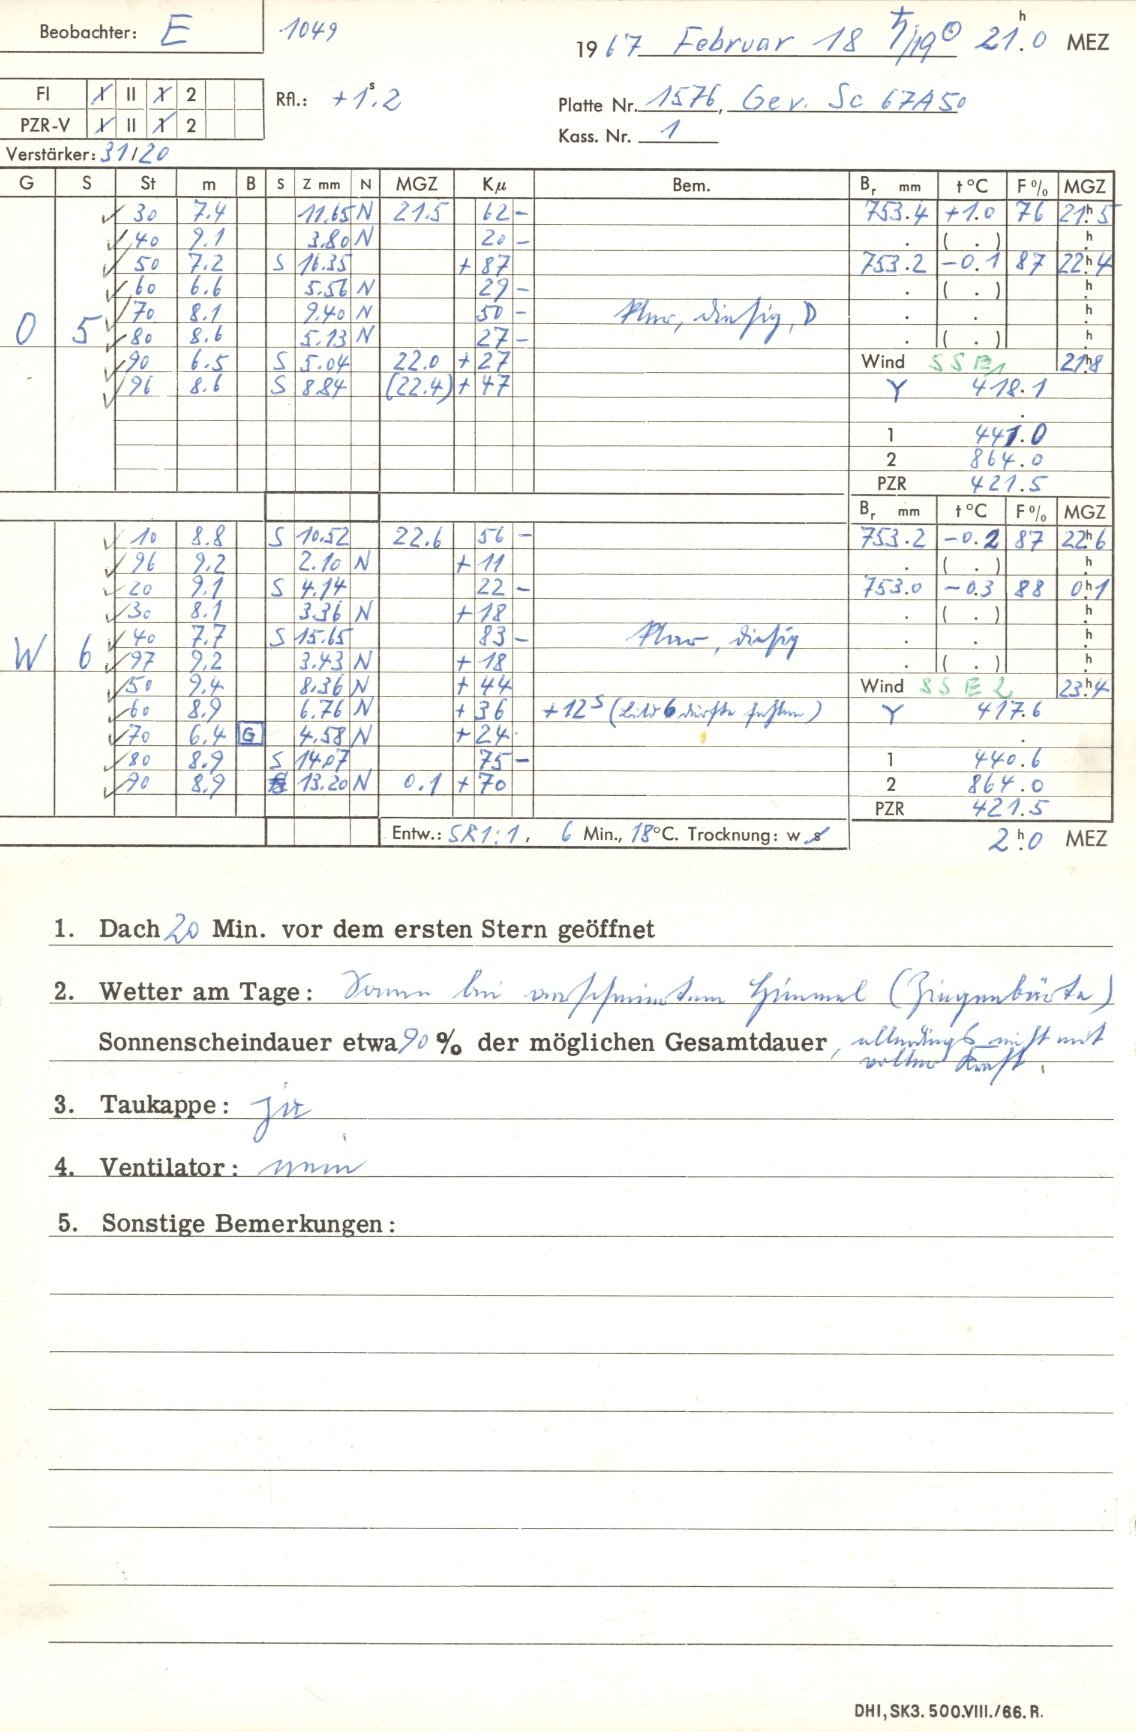 Beobachter: E 1049 1967 Februar 18 ♄/19 ☉ 21.h0 MEZ
FI I II 1 2 Rfl.: +1.s2 Platte Nr. 1576, Gev. Sc 67A50
PZR-V I II 1 2 Kass. Nr. 1
Verstärker: 31/20
G S St m B S Z mm N MGZ Kμ Bem. Br mm t °C F % MGZ
✓ 30 7.4 11.65 N 21.5 62 – 753.4 +1.0 76 21h.5
✓ 40 9.1 3.80 N 20 – . ( . ) h.
✓ 50 7.2 S 16.35 + 87 753.2 –0.1 87 22h.4
✓ 60 6.6 5.56 N 29 – . ( . ) h.
O 5 ✓ 70 8.1 9.40 N 50 – Klar, diesig, D . . h.
✓ 80 8.6 5.13 N 27 – . ( . ) h.
✓ 90 6.5 S 5.04 22.0 + 27 Wind SSE1 21h.8
✓ 96 8.6 S 8.84 (22.4) + 47 Y 418.1
.
1 441.0
2 864.0
PZR 421.5
Br mm t °C F % MGZ
✓ 10 8.8 S 10.52 22.6 56 – 753.2 –0.2 87 22h.6
✓ 96 9.2 2.10 N + 11 . ( . ) h.
✓ 20 9.1 S 4.14 22 – 753.0 –0.3 88 0h.1
✓ 30 8.1 3.36 N + 18 . ( . ) h.
W 6 ✓ 40 7.7 S 15.65 83 – Klar, diesig . . h.
✓ 97 9.2 3.43 N + 18 . ( . ) h.
✓ 50 9.4 8.36 N + 44 Wind SSE 2 23h.4
✓ 60 8.9 6.76 N + 36 +12s (Bild 6 dürfte fehlen) Y 417.6
✓ 70 6.4 G 4.58 N + 24 .
✓ 80 8.9 S 14.07 75 – 1 440.6
✓ 90 8.9 13.20 N 0.1 + 70 2 864.0
PZR 421.5
Entw.: SR1:1, 6 Min., 18°C. Trocknung: w s 2h.0 MEZ
1. Dach 20 Min. vor dem ersten Stern geöffnet
2. Wetter am Tage: Sonne bei verschmiertem Himmel (Ziegenbärte)
Sonnenscheindauer etwa 90 % der möglichen Gesamtdauer, allerdings nicht mit
voller Kraft.
3. Taukappe: ja
4. Ventilator: nein
5. Sonstige Bemerkungen:
DHI, SK3. 500.VIII./66. R.